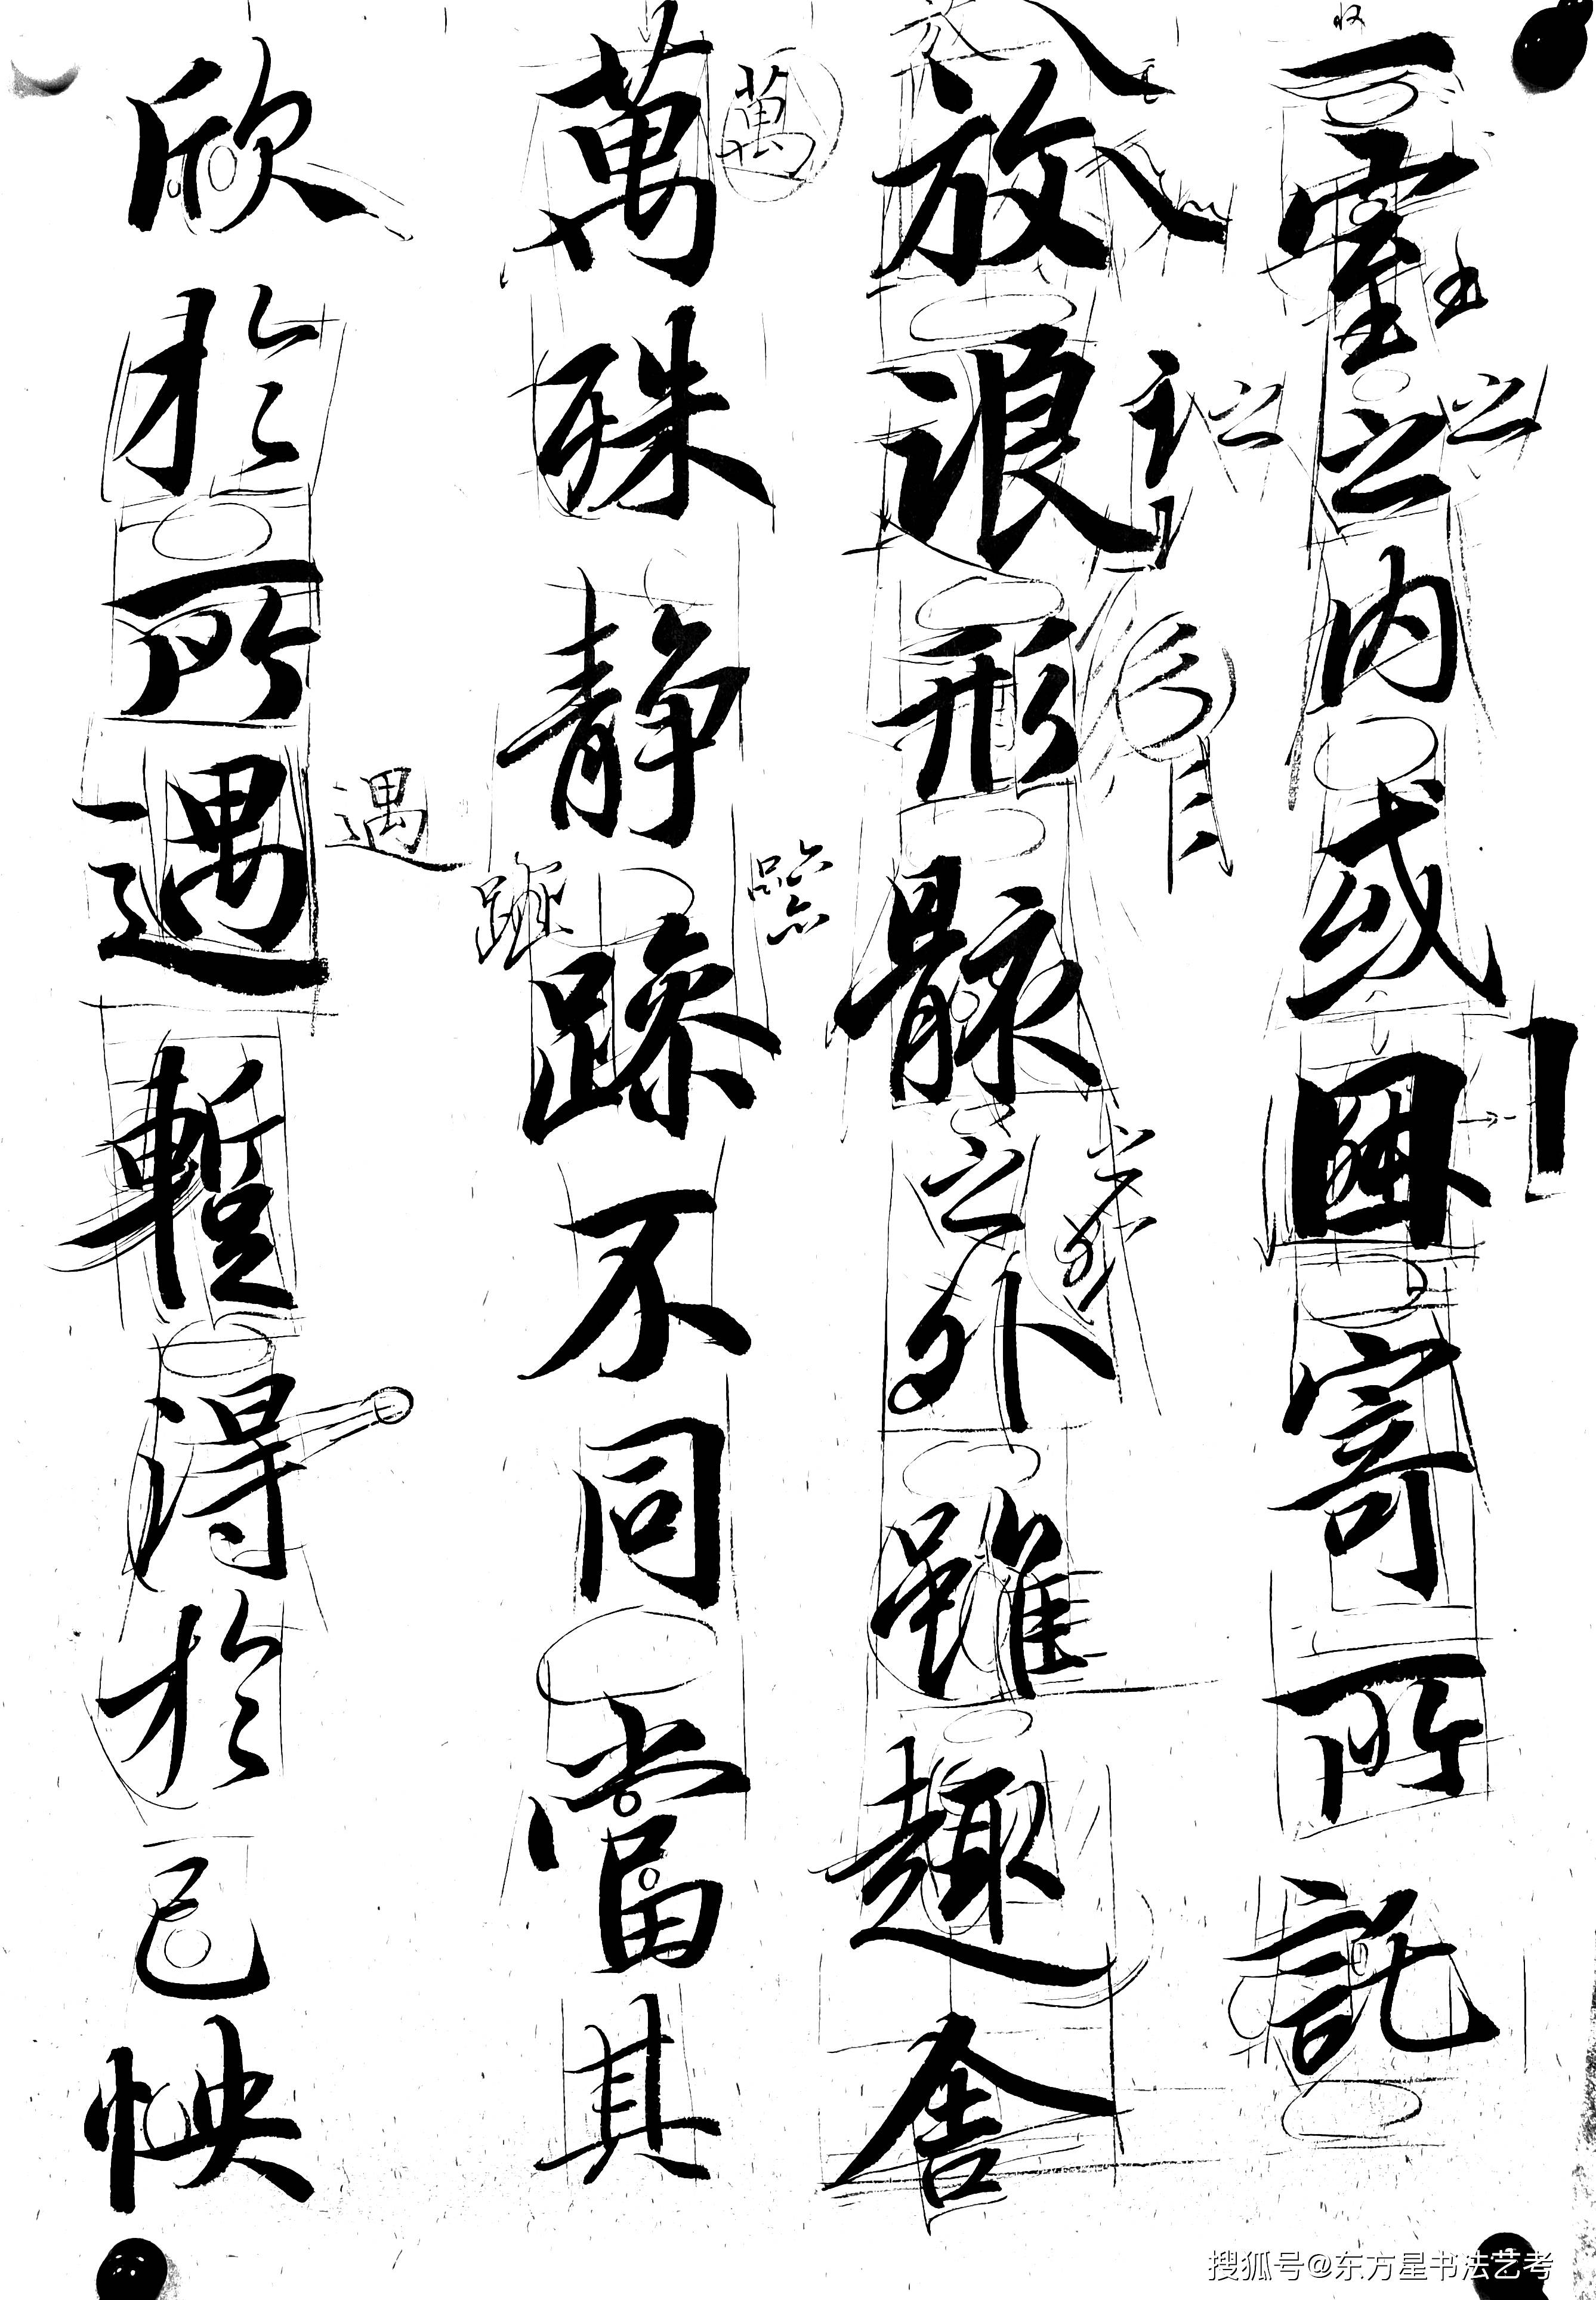 一室之内或因寄所託
放浪形骸之外雖趣舍
萬殊静躁不同當其
欣於所遇蹔得於己怏
萬
遇
之
搜狐号@东方星书法艺考